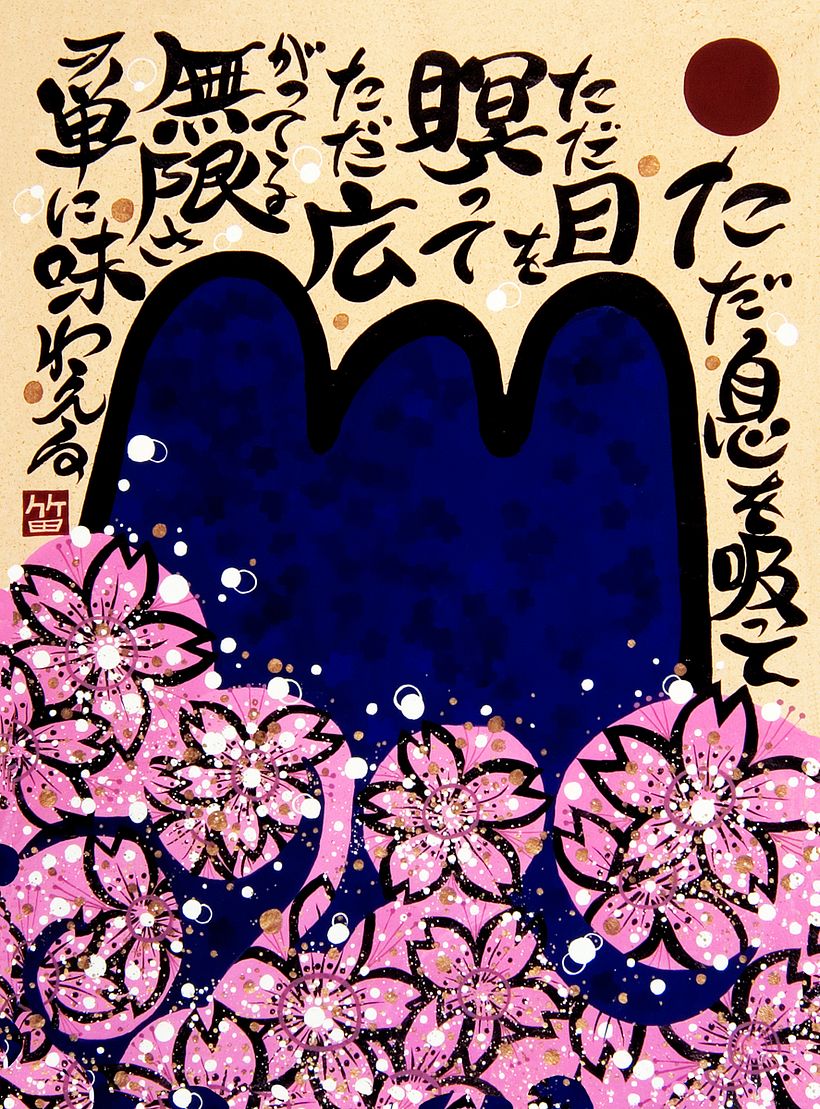 ただ息を吸って
ただ目を
瞑って
ただ広
がってる
無限さ
ヲ単に味わえる
笛